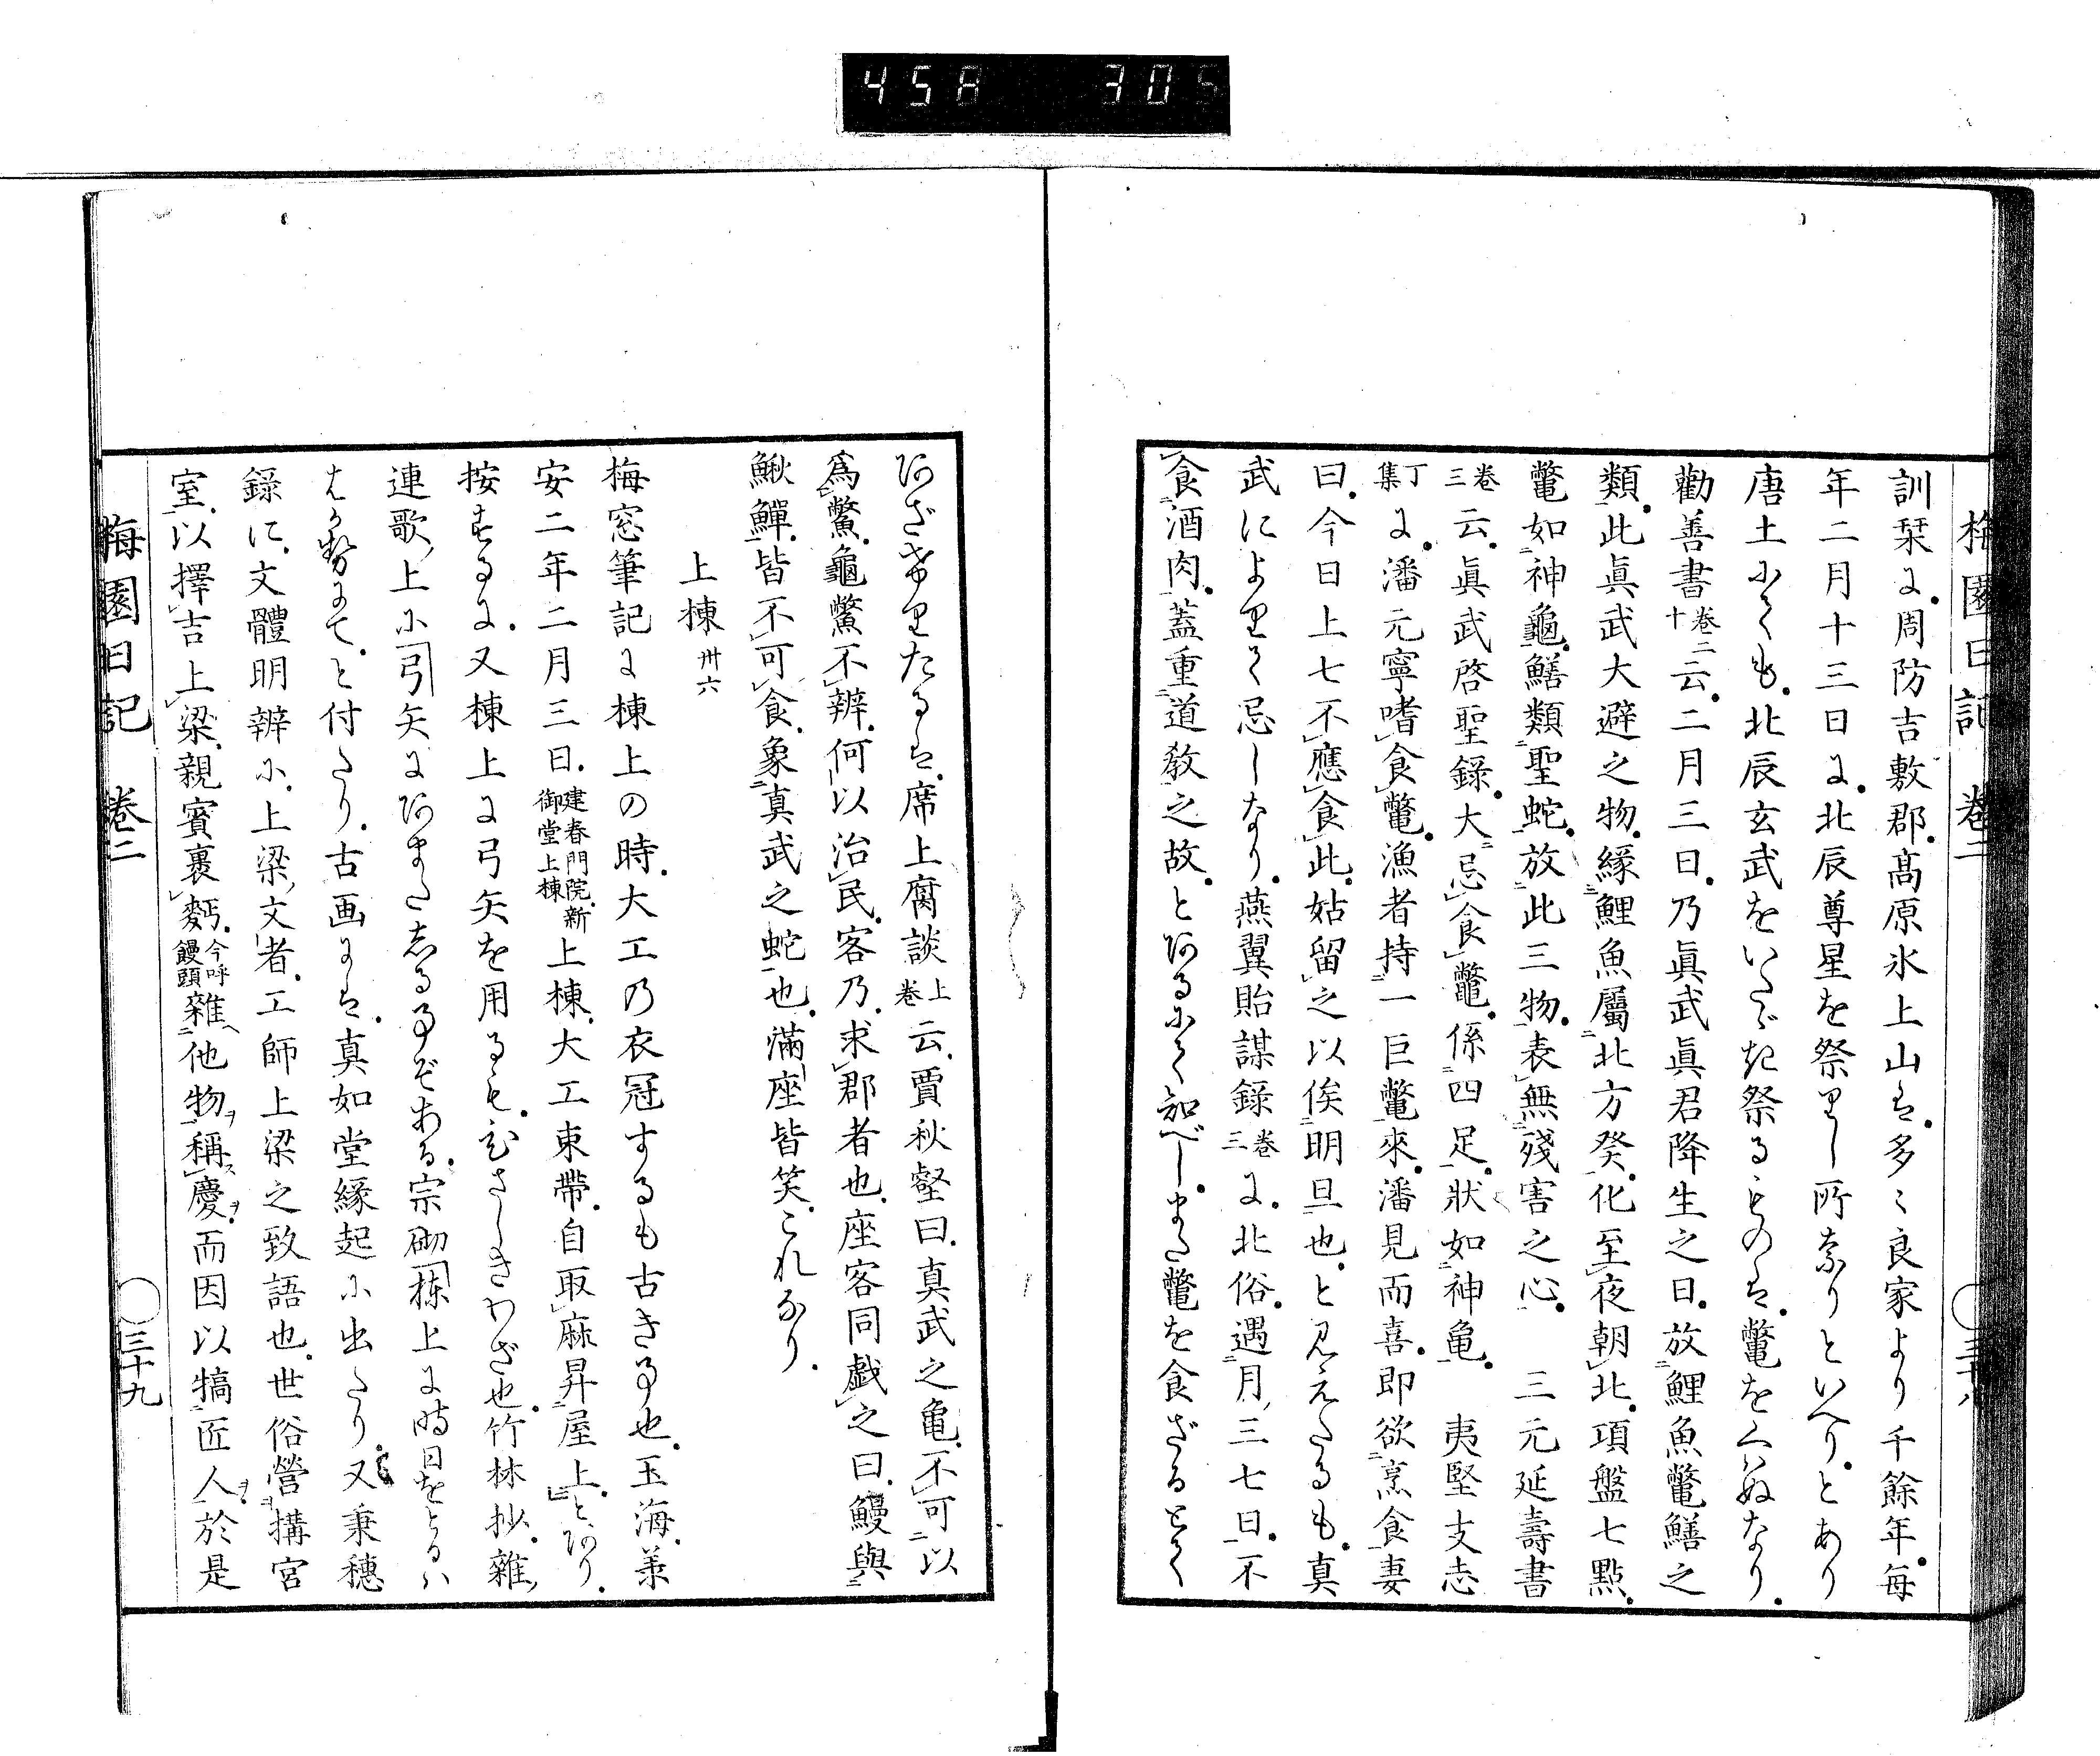 458 305
梅園日記 卷二 ○三十八
訓栞に。周防吉敷郡。髙原氷上山は。多〻良家より千餘年。每
年二月十三日に。北辰尊星を祭りし所なりといへり。とあり
唐土にても。北辰玄武をいたゞき祭るものは。鼈をくはぬなり。
勸善書卷二十云。二月三日。乃眞武眞君降生之日。放鯉魚鼈鱔之
類。此眞武大避之物。緣鯉魚屬北方癸。化至夜朝北。項盤七點。
鼈如神龜。鱔類聖蛇。放此三物。表無殘害之心。 三元延壽書
卷三云。眞武啓聖錄。大忌食鼈。係四足。狀如神龜。 夷堅支志
丁集に。潘元寧嗜食鼈。漁者持一巨鼈來。潘見而喜。即欲烹食。妻
曰。今日上七不應食此。姑留之以俟明旦也。と見えたるも。真
武によりて忌しなり。燕翼貽謀錄卷三に。北俗。遇月三七日。不
食酒肉。蓋重道敎之故。とあるにて知べし。また鼈を食ざるとて
あざけりたるは。席上腐談上卷云。賈秋壑曰。真武之亀。不可以
爲鱉。龜鱉不辨。何以治民。客乃求郡者也。座客同戲之曰。鰻與
鰍鱓。皆不可食。象真武之蛇也。滿座皆笑。これなり。
上棟 卅六
梅窓筆記に棟上の時。大工の衣冠するも古き事也。玉海。羕
安二年二月三日。建春門院新御堂上棟上棟。大工束帶。自取麻昇屋上。とあり。
按ずるに。又棟上に弓矢を用るも。ひさしきわざ也。竹林抄。雜
連歌。上に弓矢にあまたしるす事ぞある。宗砌棟上に時日をとるは
はか勢にて。と付たり。古画には。真如堂緣起に出たり。又秉穗
錄に。文體明辨に。上梁文者。工師上梁之致語也。世俗營構宮
室。以擇吉上梁。親賓裹麪。今呼饅頭雜他物稱慶。而因以犒匠人。於是
梅園日記 卷二 ○三十九